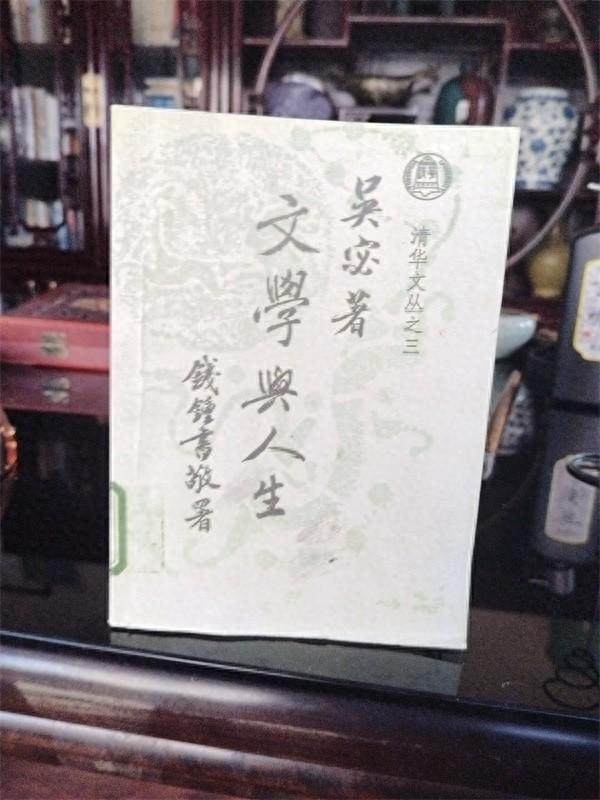 清华文丛之三
吴宓著
文學與人生
錢鍾書敬署